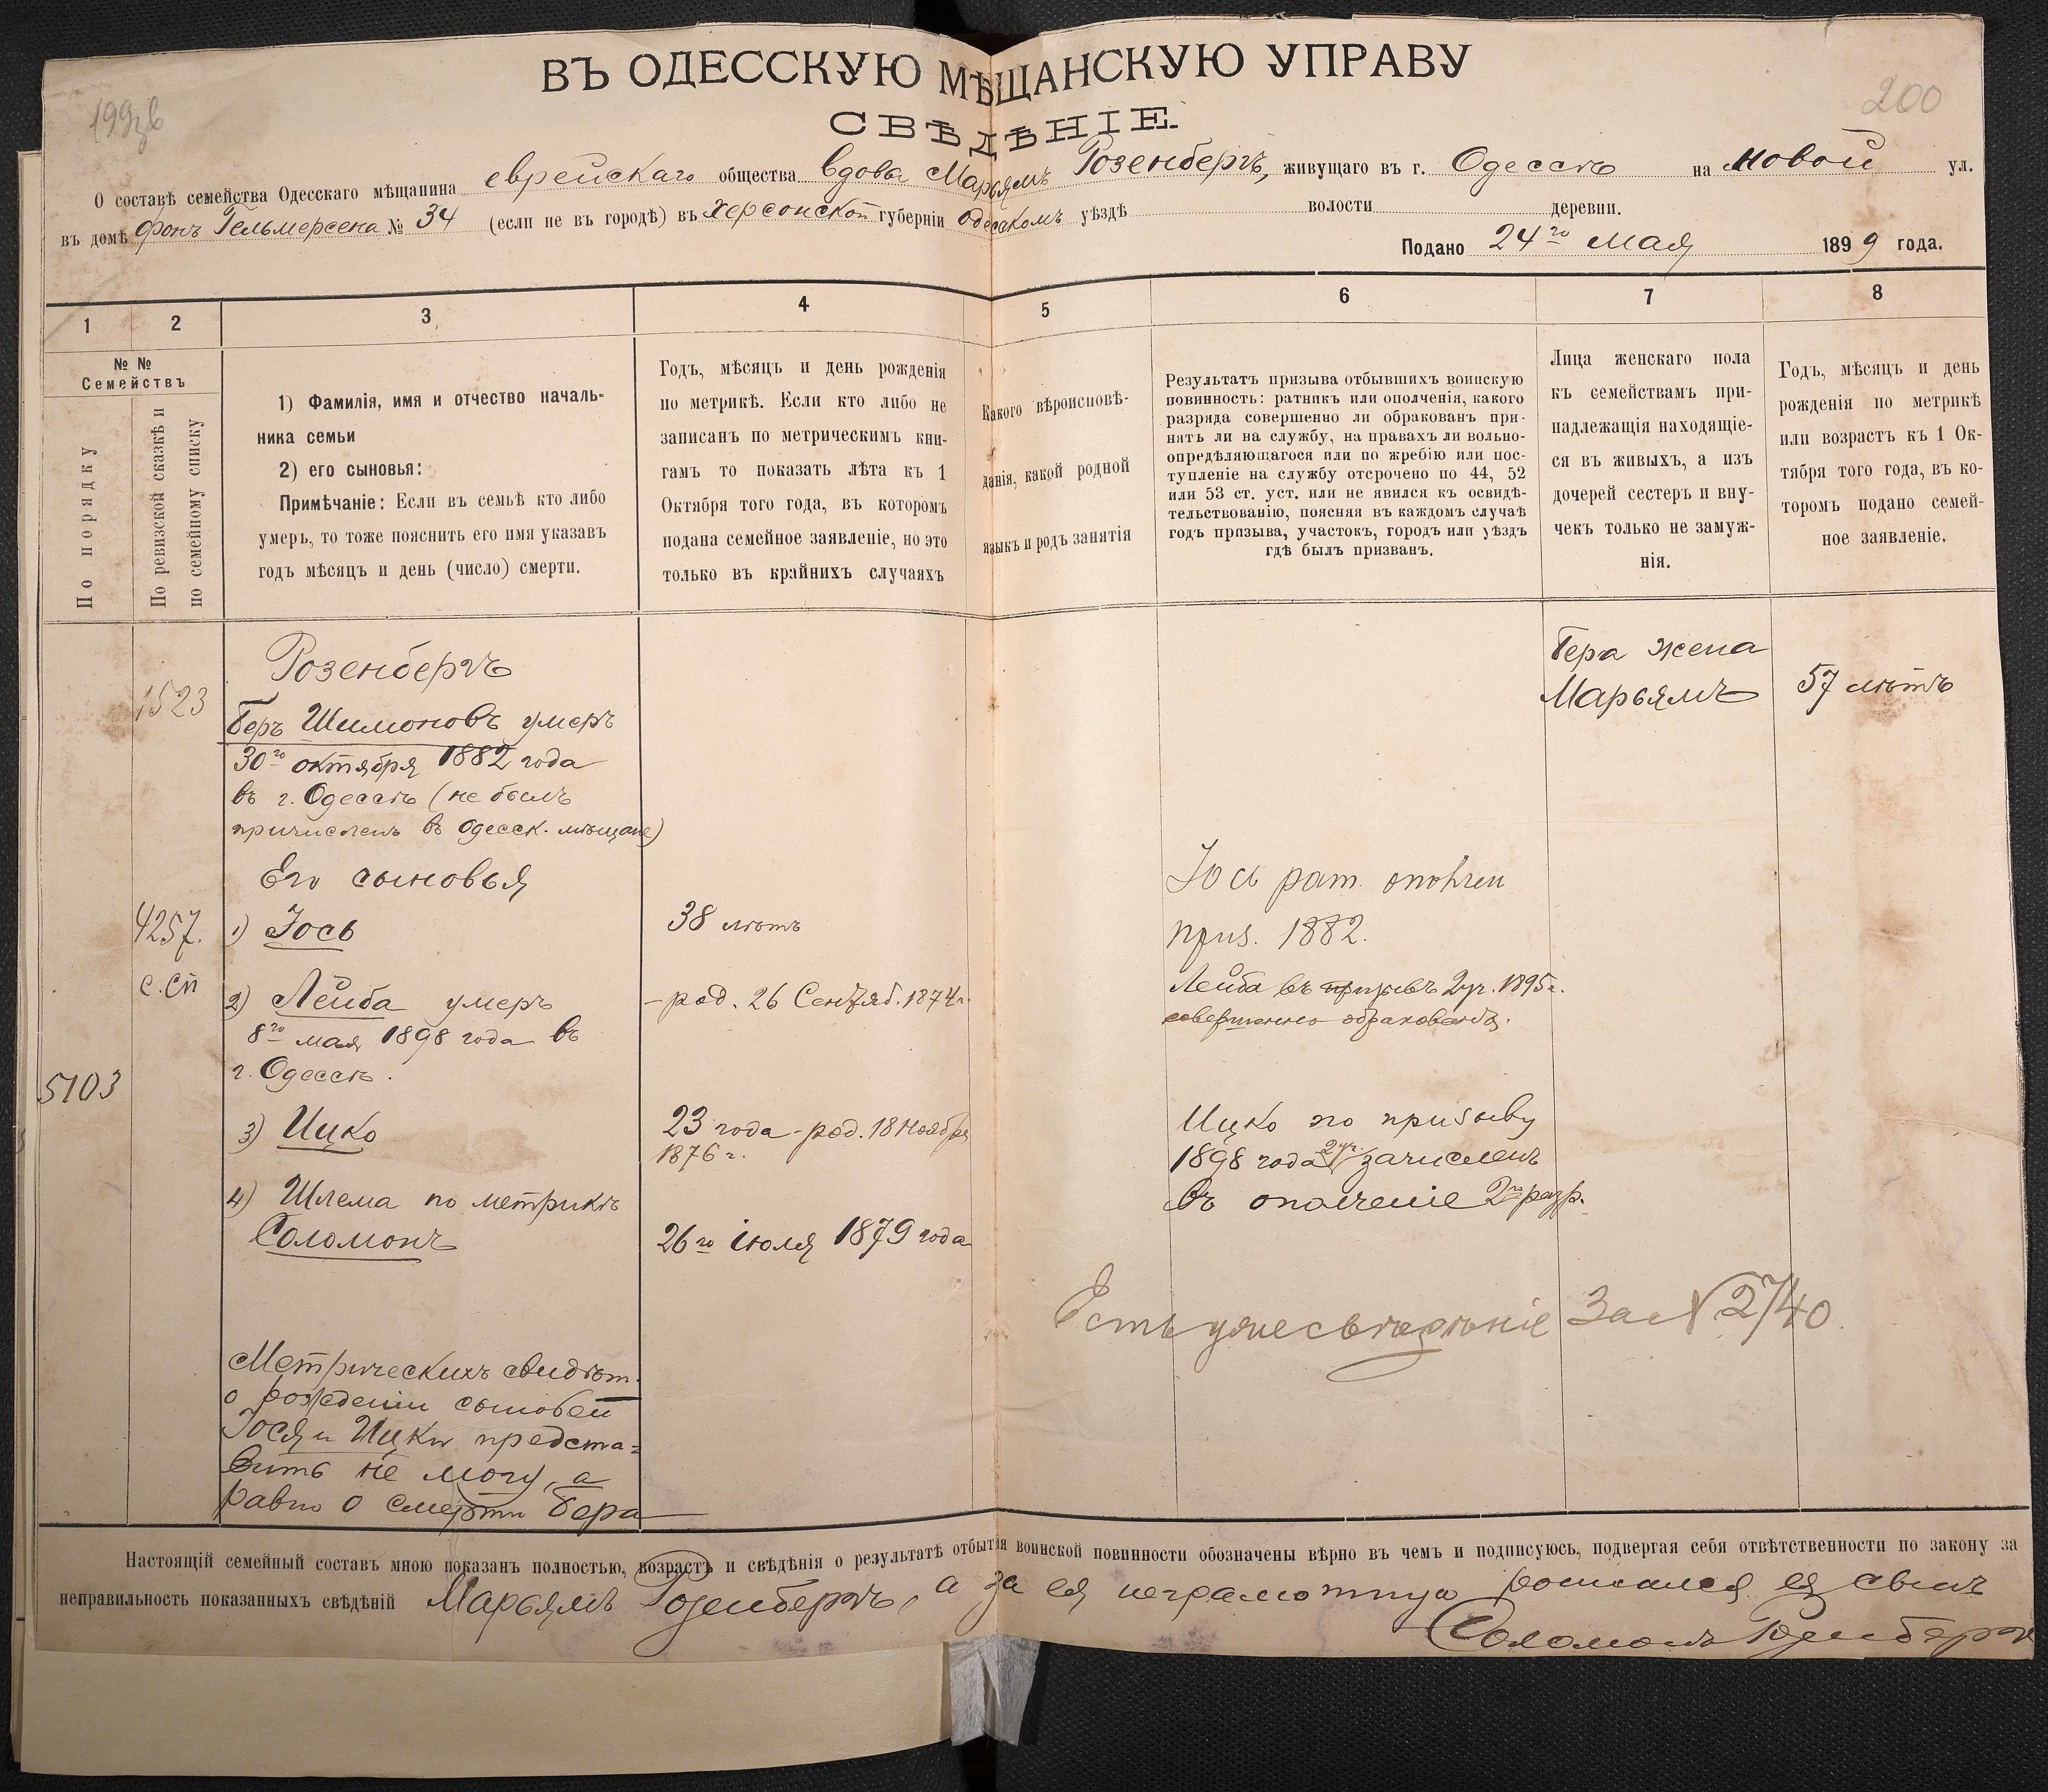 ВЪ ОДЕССКУЮ МѢЩАНСКУЮ УПРАВУ
200
СВѢДѢНІЕ.
О составѣ семейства Одесскаго мѣщанина еврейскаго общества вдовы Марьямъ Розенбергъ, живущаго въ г. Одессѣ на Новой ул.
въ домѣ фонъ Гельмерсена № 34 (если не въ городѣ) въ Херсонской губерніи Одесскомъ уѣздѣ волости деревни.
Подано 24го Мая 1899 года.
1 2 3 4 5 6 7 8
№ №
Семействъ
По порядку
По ревизской сказкѣ и
по семейному списку
1) Фамилія, имя и отчество началь-
ника семьи
2) его сыновья:
Примѣчаніе: Если въ семьѣ кто либо
умеръ, то тоже пояснить его имя указавъ
годъ мѣсяцъ и день (число) смерти.
Годъ, мѣсяцъ и день рожденія
по метрикѣ. Если кто либо не
записанъ по метрическимъ кни-
гамъ то показать лѣта къ 1
Октября того года, въ которомъ
подана семейное заявленіе, но это
только въ крайнихъ случаяхъ
Какого вѣроисповѣ-
данія, какой родной
языкъ и родъ занятія
Результатъ призыва отбывшихъ воинскую
повинность: ратникъ или ополченія, какого
разряда совершенно ли обракованъ при-
нятъ ли на службу, на правахъ ли вольно-
опредѣляющагося или по жребію или пос-
тупленіе на службу отсрочено по 44, 52
или 53 ст. уст. или не явился къ освидѣ-
тельствованію, поясняя въ каждомъ случаѣ
годъ призыва, участокъ, городъ или уѣздъ
гдѣ былъ призванъ.
Лица женскаго пола
къ семействамъ при-
надлежащія находящіе-
ся въ живыхъ, а изъ
дочерей сестеръ и вну-
чекъ только не замуж-
нія.
Годъ, мѣсяцъ и день
рожденія по метрикѣ
или возрастъ къ 1 Ок-
тября того года, въ ко-
торомъ подано семей-
ное заявленіе.
Розенбергъ
1523
Беръ Шимоновъ умеръ
30го октября 1882 года
въ г. Одессѣ (не былъ
причисленъ въ Одесск. мѣщане)
Бера жена
Марьямъ
57 лѣтъ
Его сыновья
4257.
с. сп
1) Іось
38 лѣтъ
Іось рат. ополчен
приз. 1882.
2) Лейба умеръ
8го мая 1898 года въ
г. Одессѣ.
— род. 26 Сентяб. 1874 г.
Лейба въ призывъ 2 уч. 1895 г.
совершенно обракованъ.
5103
3) Ицко
23 года - род. 18 Ноября
1876 г.
Ицко по призыву
1898 года 2 уч. зачисленъ
въ ополченіе 2го разр.
4) Шлема по метрикѣ
Соломонъ
26го іюля 1879 года
За № 2740
Метрическихъ свидѣт.
о рожденіи сыновей
Іося и Ицки предста-
вить не могу, а
равно о смерти Бера
Настоящій семейный составъ мною показанъ полностью, возрастъ и свѣдѣнія о результатѣ отбытія воинской повинности обозначены вѣрно въ чемъ и подписуюсь, подвергая себя отвѣтственности по закону за
неправильность показанныхъ свѣдѣній Марьямъ Розенбергъ, а за ея неграмотную росписался ея сынъ
Соломонъ Розенбергъ